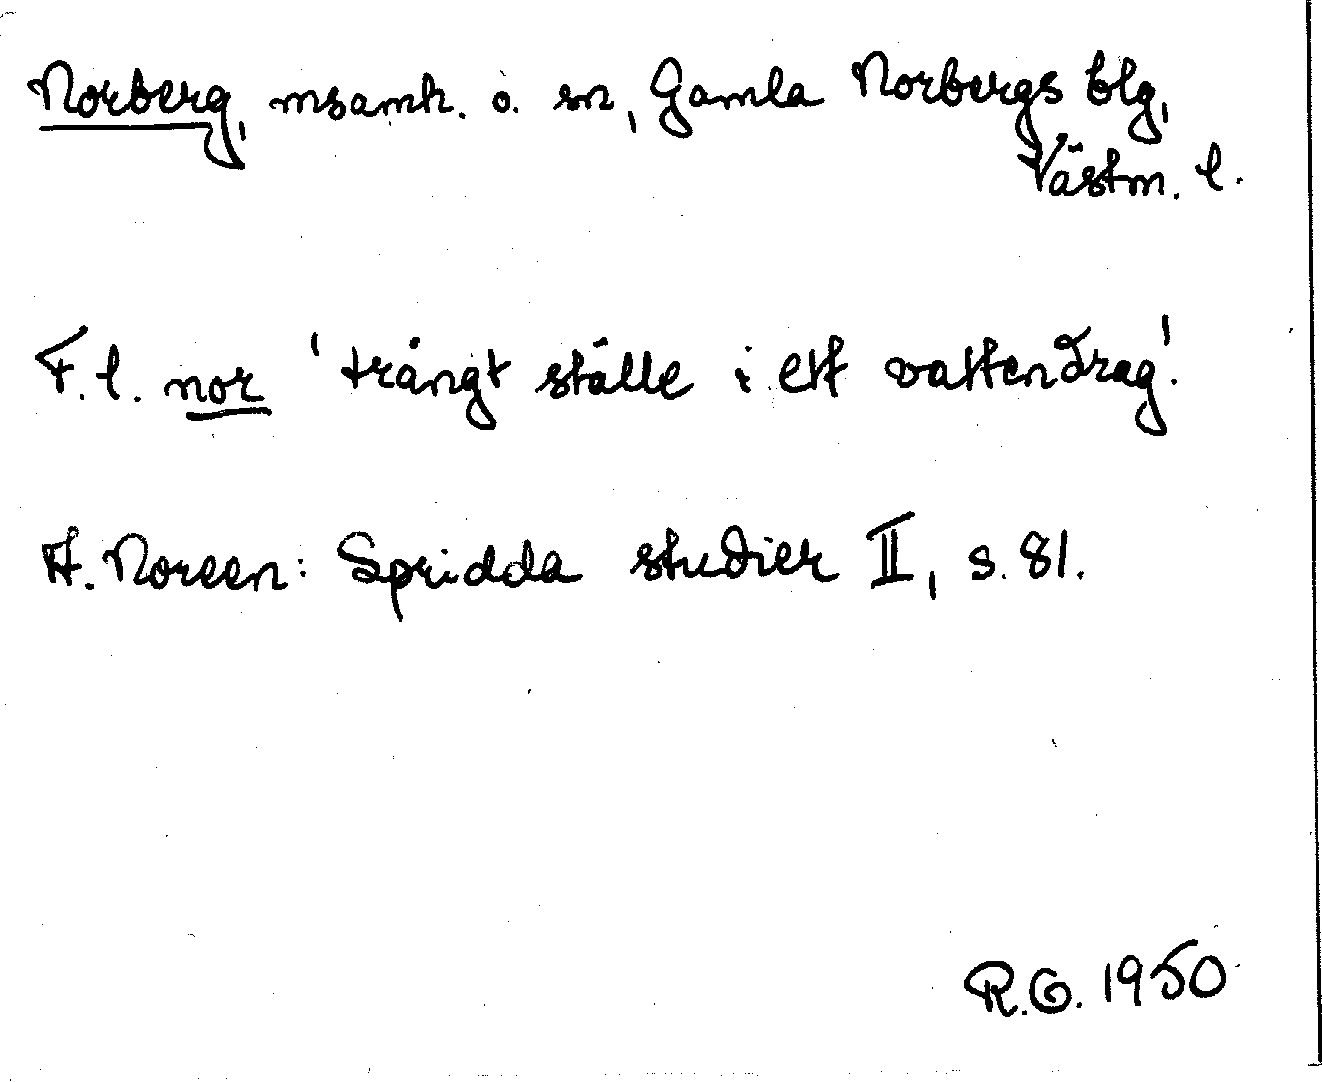 Norberg, msamh. o. sn, Gamla Norbergs blg,
Västm. l.
F. l. nor 'trångt ställe i ett vattendrag'.
A. Noreen: Spridda studier II, s. 81.
R.G. 1950